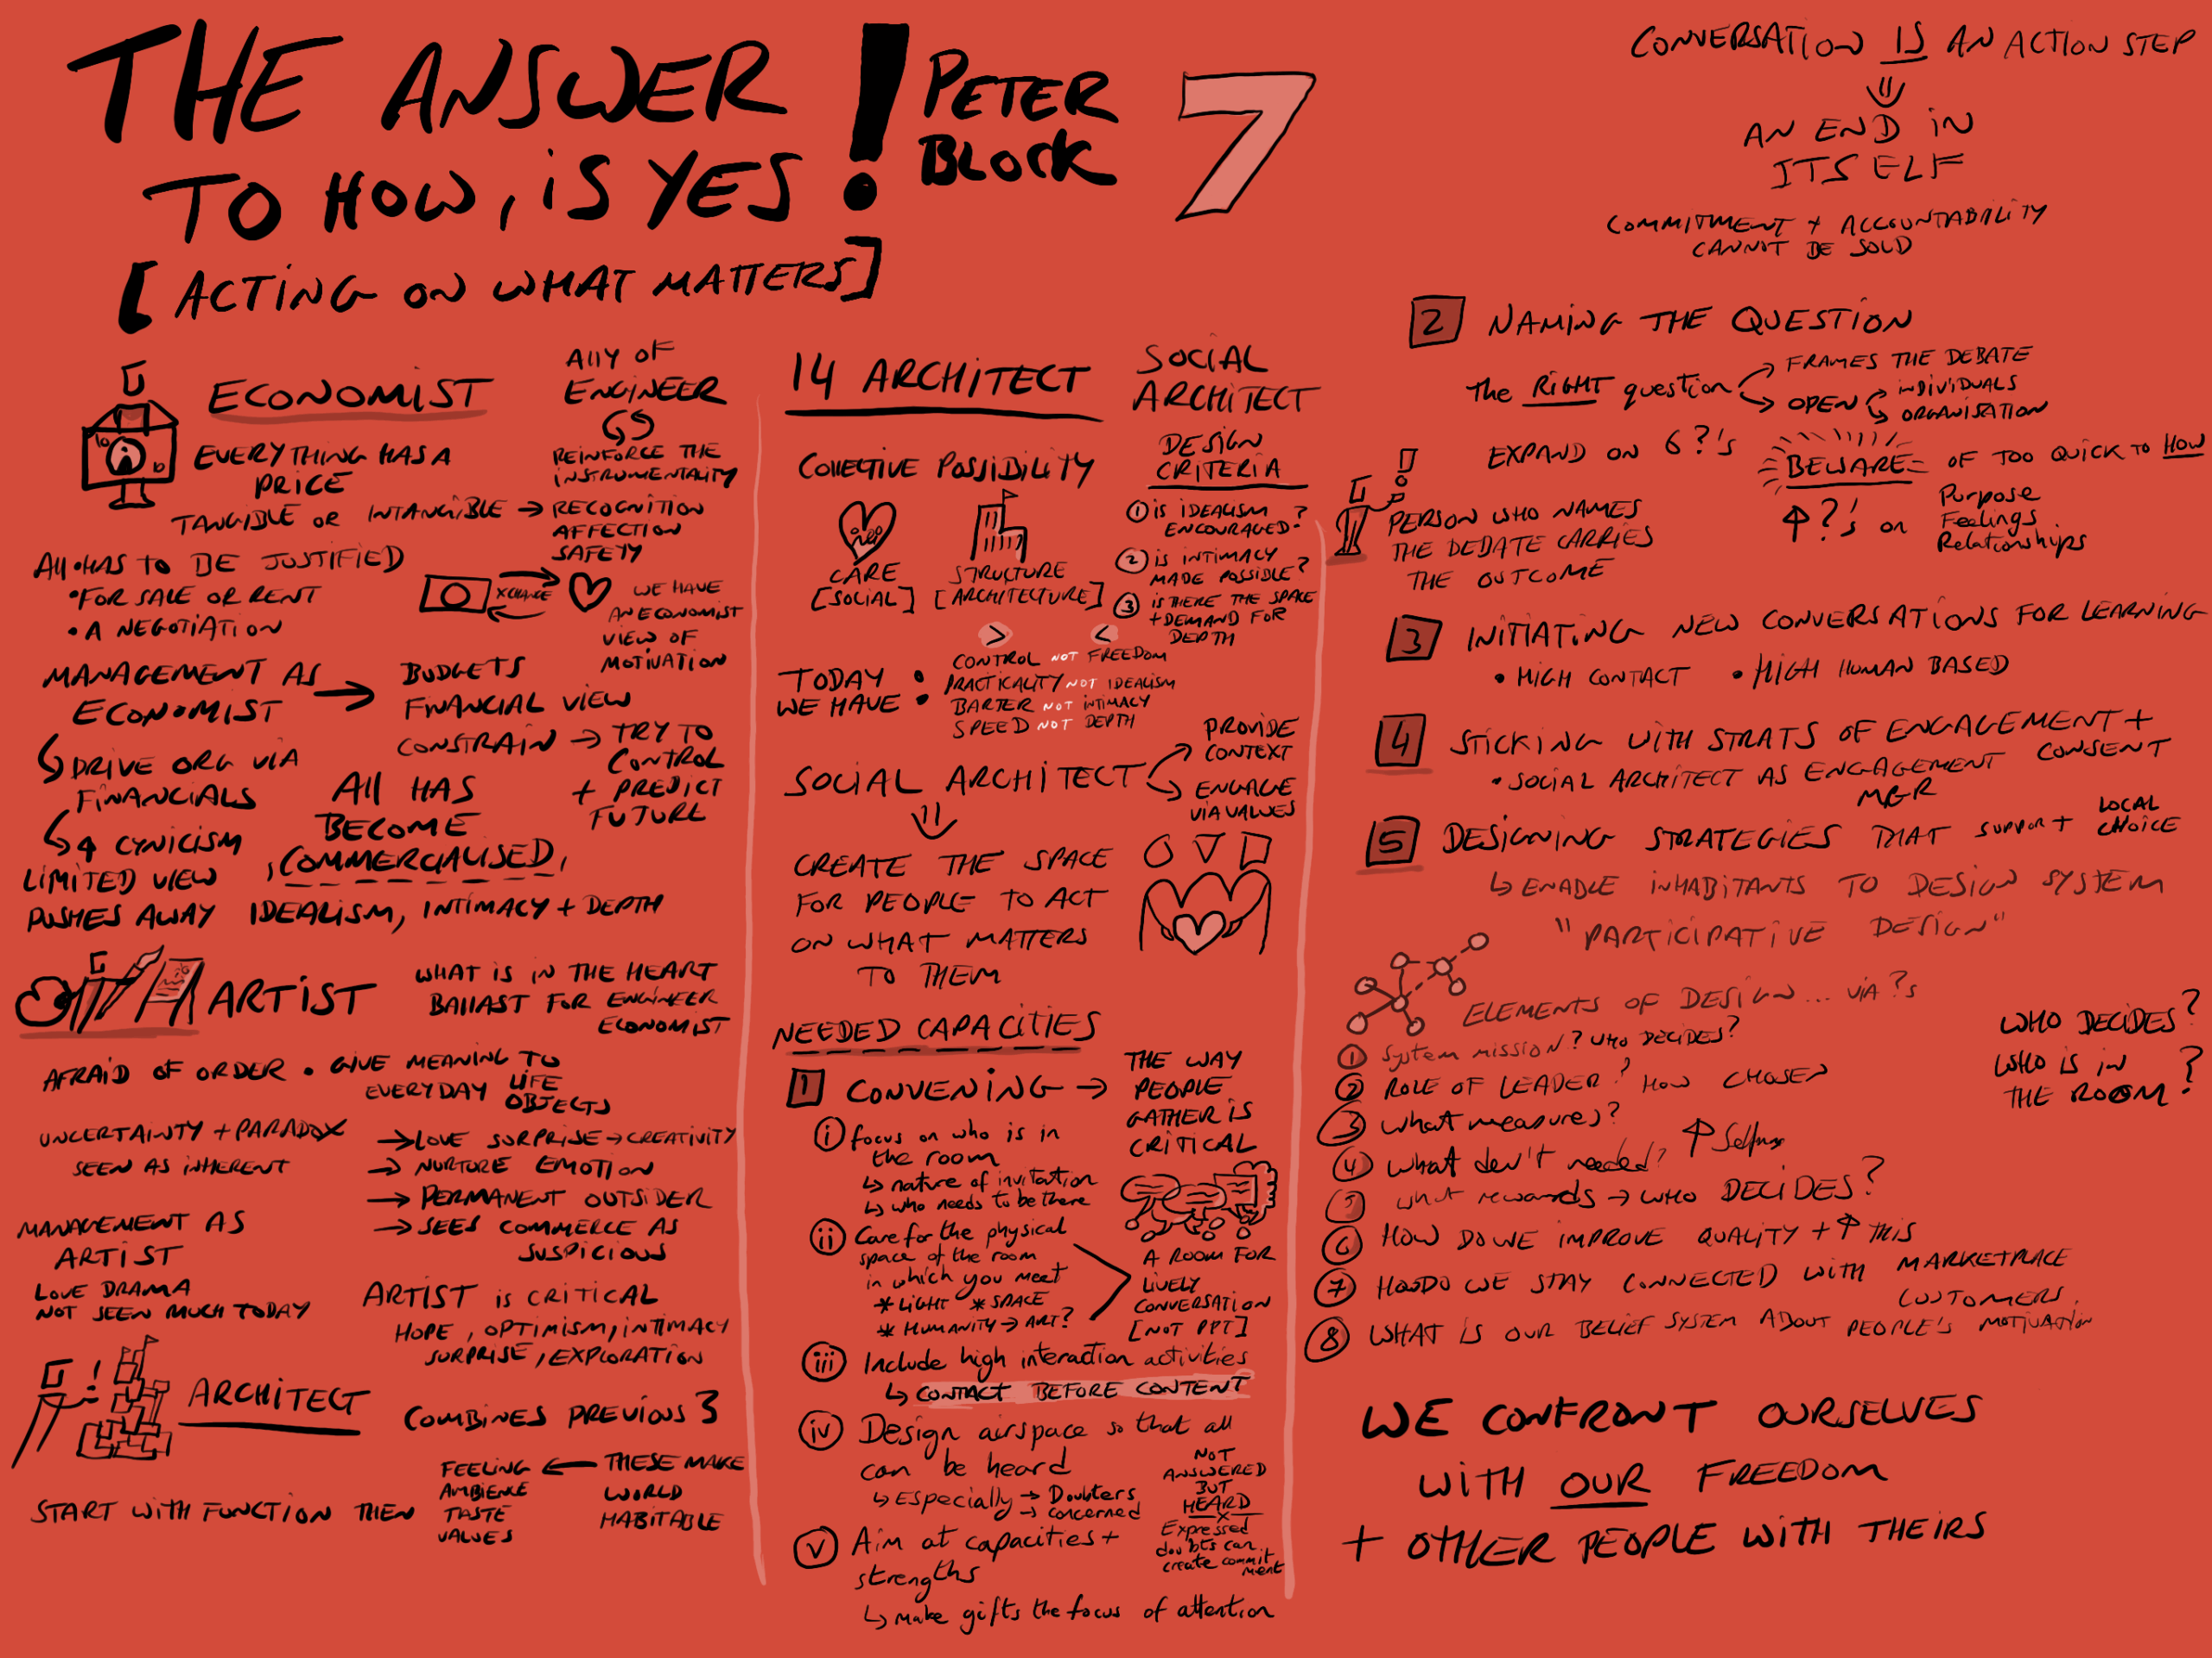 THE ANSWER
TO HOW, iS YES!
[ACTiNG ON WHAT MATTERS]
PETER
BLOCK
7
ECONOMiST
EVERYTHING HAS A
PRICE
TANGIBLE OR INTANGIBLE → RECOGNITION
AFFECTION
SAFETY
Ally OF
ENGINEER
REINFORCE THE
INSTRUMENTALITY
All HAS TO BE JUSTIFIED
• FOR SALE OR RENT
• A NEGOTIATION
XCHANGE
WE HAVE
AN ECONOMIST
VIEW OF
MOTIVATION
MANAGEMENT AS
ECONOMIST
→ BUDGETS
FINANCIAL VIEW
CONSTRAIN → TRY TO
CONTROL
+ PREDICT
FUTURE
↳ DRIVE ORG VIA
FINANCIALS
↳ ↑ CYNICISM
All HAS
BECOME
,COMMERCIALISED,
LIMITED VIEW
PUSHES AWAY IDEALISM, INTIMACY + DEPTH
ARTIST
WHAT IS IN THE HEART
BALLAST FOR ENGINEER
ECONOMIST
AFRAID OF ORDER • GIVE MEANING TO
EVERYDAY LIFE
OBJECTS
UNCERTAINTY + PARADOX
SEEN AS INHERENT
→ LOVE SURPRISE → CREATIVITY
→ NURTURE EMOTION
→ PERMANENT OUTSIDER
→ SEES COMMERCE AS
SUSPICIOUS
MANAGEMENT AS
ARTIST
LOVE DRAMA
NOT SEEN MUCH TODAY
ARTIST iS CRITICAL
HOPE, OPTIMISM, INTIMACY
SURPRISE, EXPLORATION
ARCHITECT
COMBINES PREVIOUS 3
START WITH FUNCTION THEN
FEELING ← THESE MAKE
AMBIENCE WORLD
TASTE HABITABLE
VALUES
14 ARCHITECT
COllECTIVE POSSIBILITY
CARE
[SOCIAL]
STRUCTURE
[ARCHITECTURE]
SOCIAL
ARCHITECT
DESIGN
CRITERIA
① IS IDEALISM
ENCOURAGED?
② IS INTIMACY
MADE POSSIBLE?
③ IS THERE THE SPACE
+ DEMAND FOR
DEPTH
> <
TODAY
WE HAVE :
CONTROL NOT FREEDOM
PRACTICALITY NOT IDEALISM
BARTER NOT INTIMACY
SPEED NOT DEPTH
SOCIAL ARCHITECT
PROVIDE
CONTEXT
ENGAGE
VIA VALUES
CREATE THE SPACE
FOR PEOPLE TO ACT
ON WHAT MATTERS
TO THEM
NEEDED CAPACITIES
1 CONVENING →
THE WAY
PEOPLE
GATHER IS
CRITICAL
i focus on who is in
the room
↳ nature of invitation
↳ who needs to be there
ii Care for the physical
space of the room
in which you meet
* LIGHT * SPACE
* HUMANITY → ART?
A ROOM FOR
LIVELY
CONVERSATION
[NOT PPT]
iii Include high interaction activities
↳ CONTACT BEFORE CONTENT
iv Design airspace so that all
can be heard
↳ Especially → Doubters
→ concerned
NOT
ANSWERED
BUT
HEARD
Expressed
doubts can
create commit
ment
v Aim at capacities +
strengths
↳ make gifts the focus of attention
CONVERSATION IS AN ACTION STEP
AN END IN
ITSELF
COMMITMENT + ACCOUNTABILITY
CANNOT BE SOLD
2 NAMING THE QUESTION
The RIGHT question
FRAMES THE DEBATE
OPEN
INDIVIDUALS
ORGANISATION
EXPAND ON 6 ?'s
BEWARE OF TOO QUICK TO HOW
↑ ?'s on
Purpose
Feelings
Relationships
PERSON WHO NAMES
THE DEBATE CARRIES
THE OUTCOME
3 INITIATING NEW CONVERSATIONS FOR LEARNING
• HIGH CONTACT • HIGH HUMAN BASED
4 STICKING WITH STRATS OF ENGAGEMENT +
CONSENT
• SOCIAL ARCHITECT AS ENGAGEMENT
MGR
5 DESIGNING STRATEGIES THAT SUPPORT LOCAL
CHOICE
↳ ENABLE INHABITANTS TO DESIGN SYSTEM
"PARTICIPATIVE DESIGN"
ELEMENTS OF DESIGN... VIA ?s
① System mission? WHO DECIDES?
② ROLE OF LEADER? HOW CHOSEN
③ what measures?
④ what dev't needed? ↑
⑤ what rewards → WHO DECIDES?
⑥ HOW DO WE IMPROVE QUALITY + ↑ THIS
⑦ HOW DO WE STAY CONNECTED WITH MARKETPLACE
CUSTOMERS.
⑧ WHAT IS OUR BELIEF SYSTEM ABOUT PEOPLE'S MOTIVATION
WHO DECIDES?
WHO IS IN
THE ROOM?
WE CONFRONT OURSELVES
WITH OUR FREEDOM
+ OTHER PEOPLE WITH THEIRS